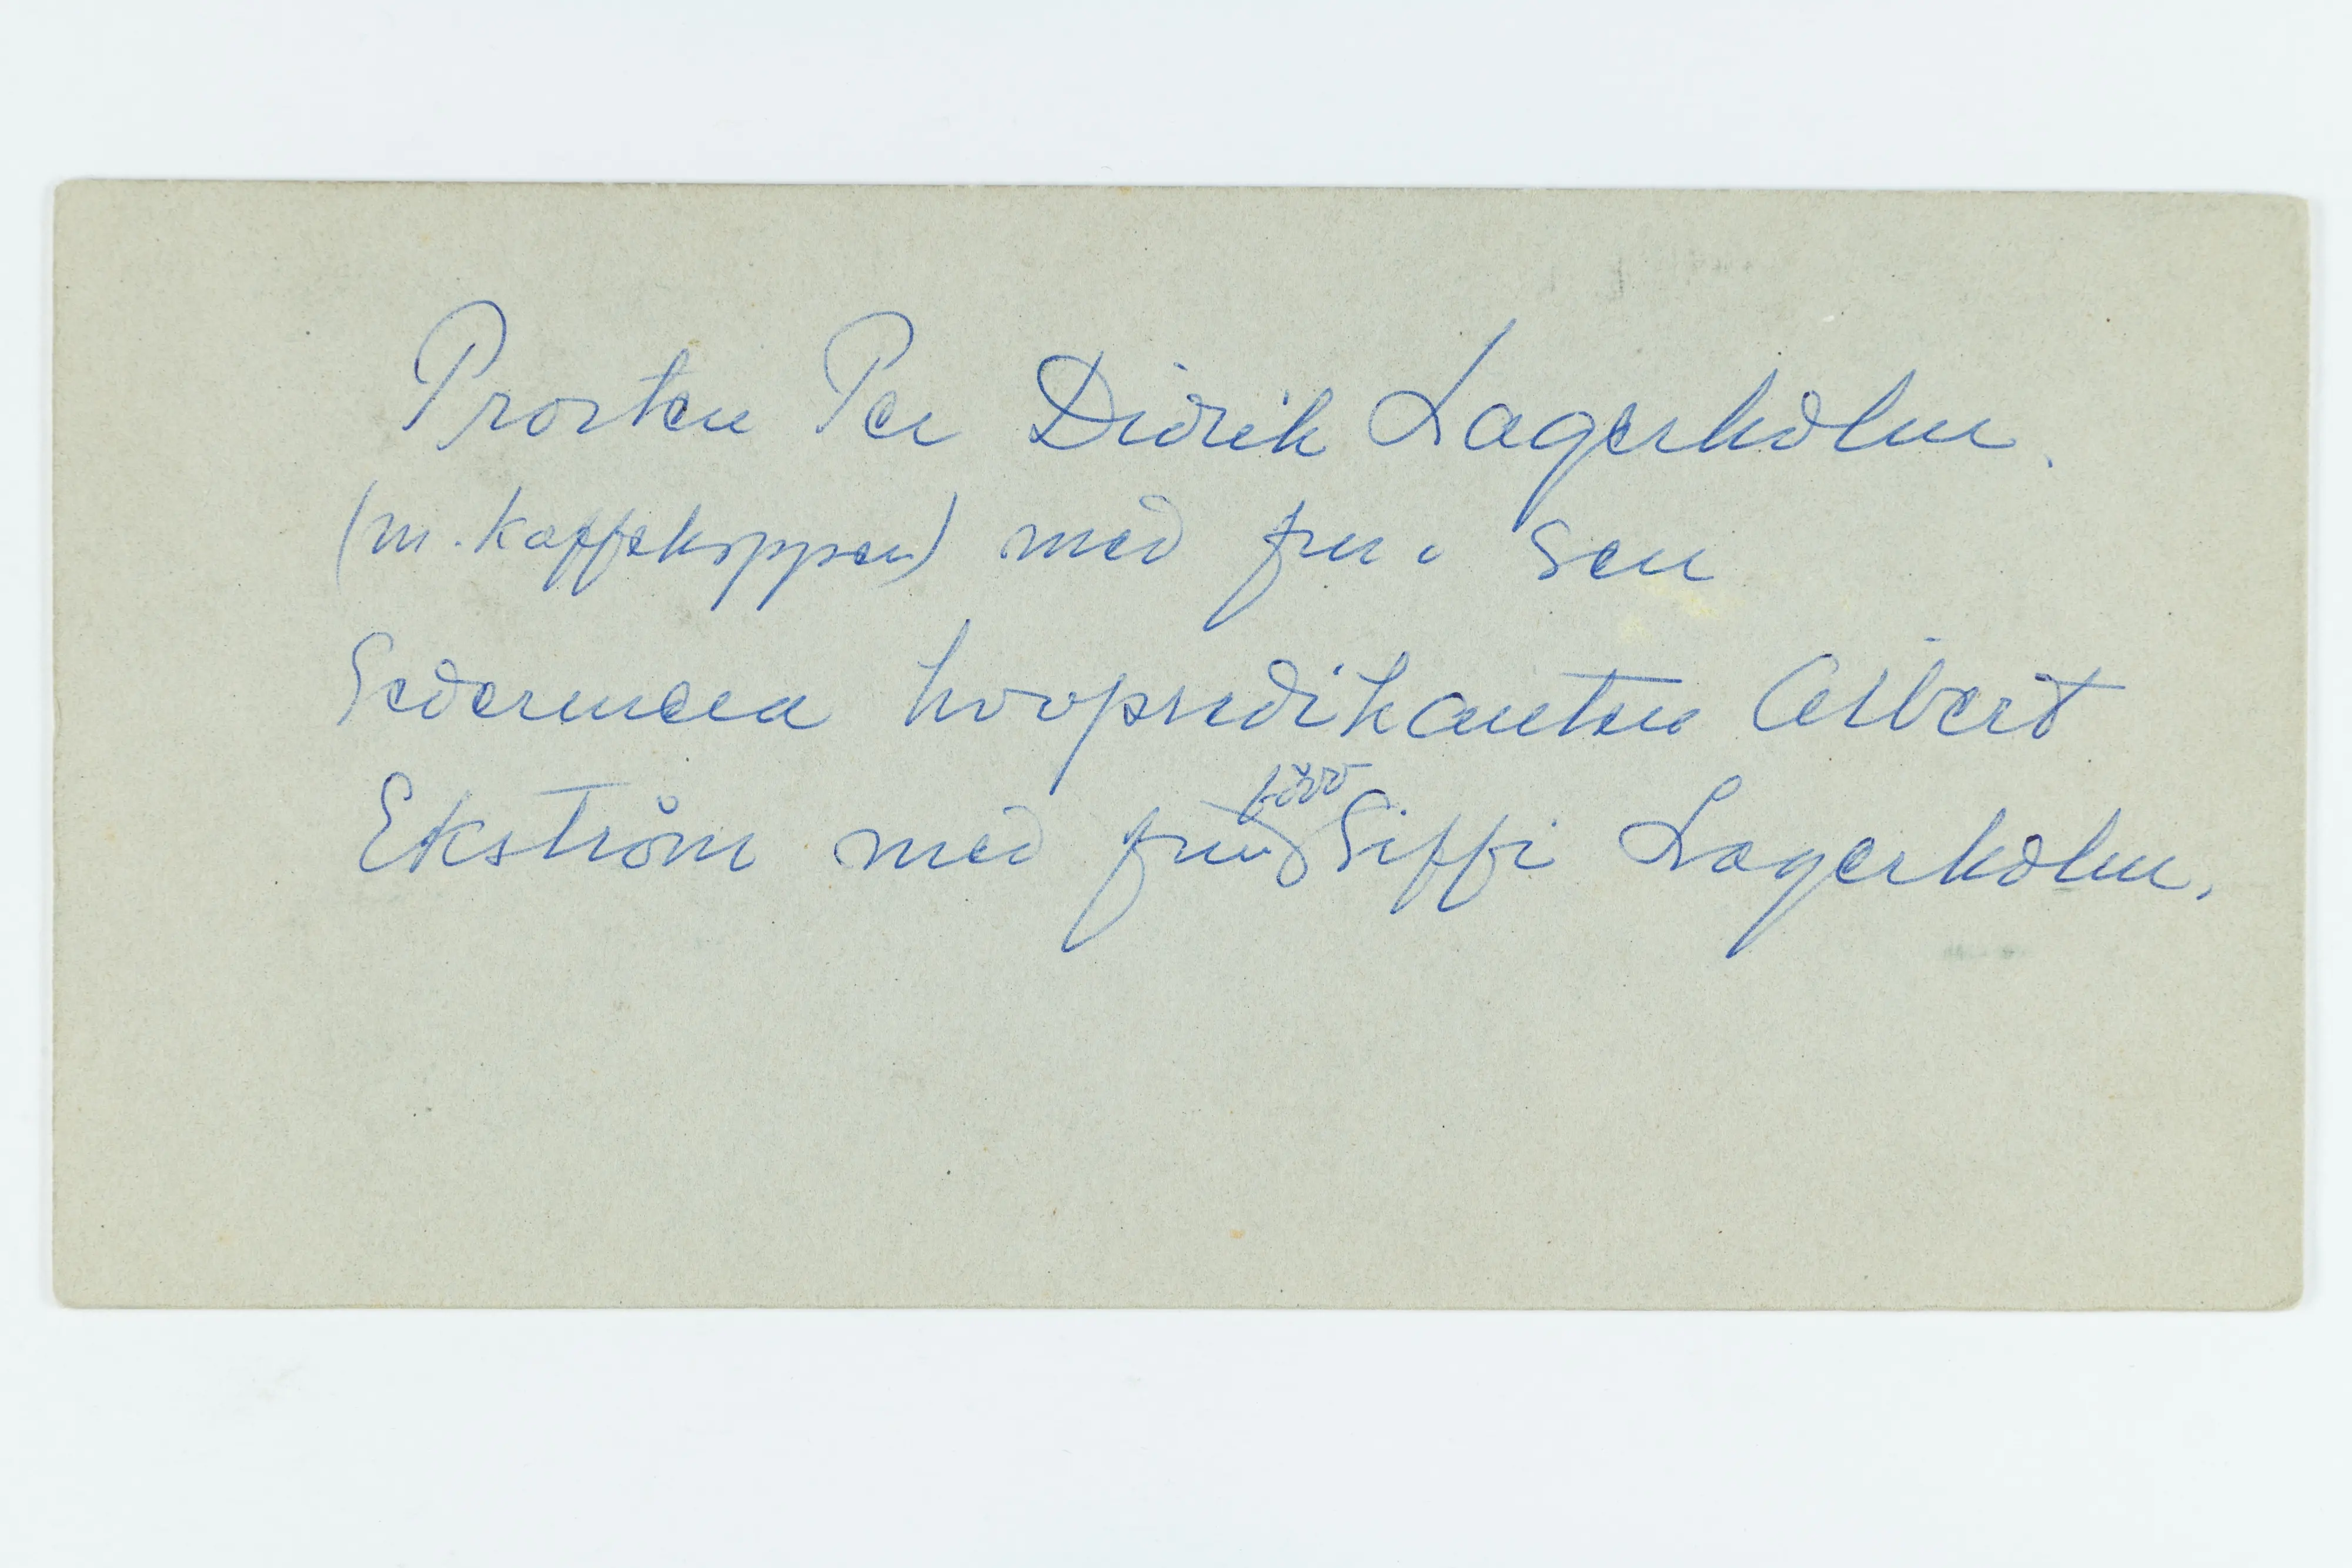 Prosten Per Didrik Lagerholm.
(m. kaffekoppen) med fru. Sen
Sedermera hovpredikanten Albert
Ekström med fru född Siffi Lagerholm.